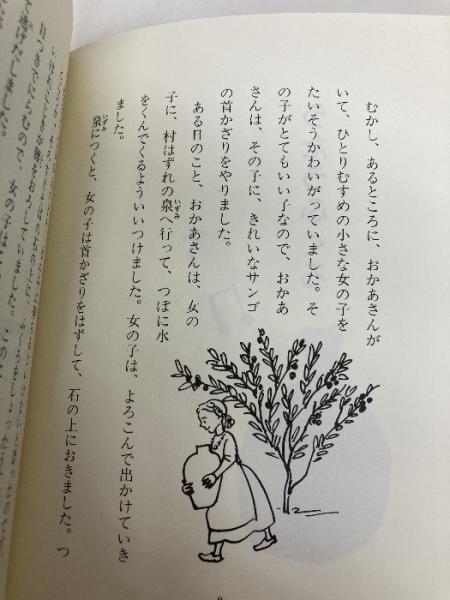 むかし、あるところに、おかあさんが
いて、ひとりむすめの小さな女の子を
たいそうかわいがっていました。そ
の子がとてもいい子なので、おかあ
さんは、その子に、きれいなサンゴ
の首かざりをやりました。
ある日のこと、おかあさんは、女の
子に、村はずれの泉へ行って、つぼに水
をくんでくるよういいつけました。女の子は、よろこんで出かけていき
ました。
泉につくと、女の子は首かざりをはずして、石の上におきました。つ
目つきでにらむので、女の子は
て逃げだしました。